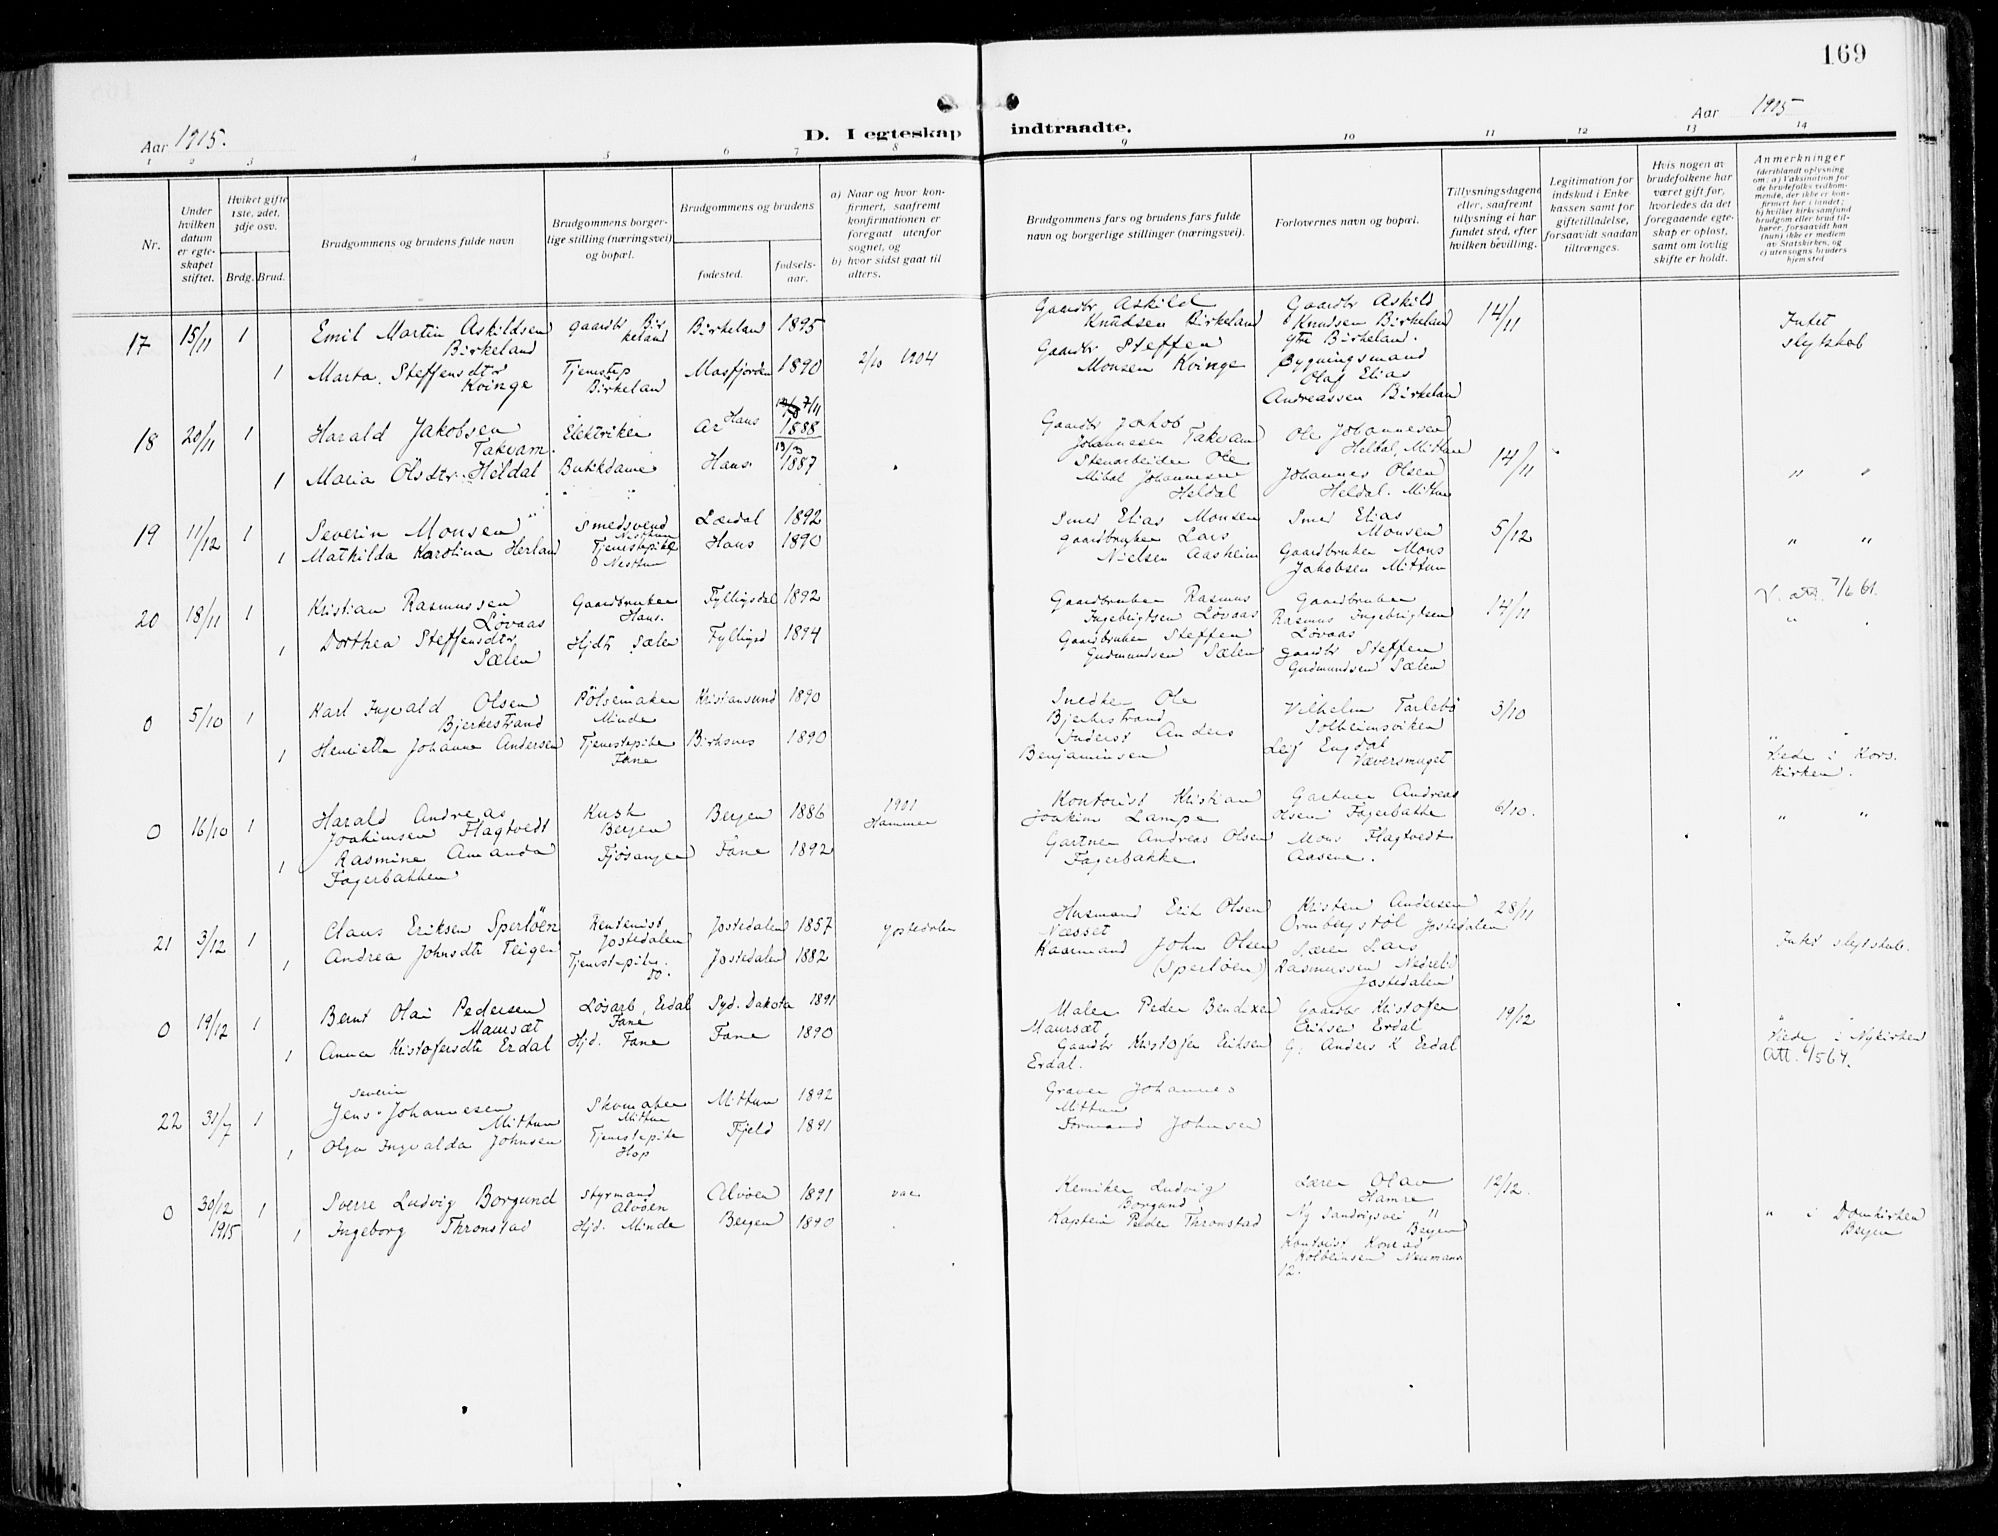 169
Aar 1915.
D. I egteskap indtraadte.
Aar 1915
1 2 3 4 5 6 7 8 9 10 11 12 13 14
Nr.
Under hvilken datum er egteskapet stiftet.
Hviket gifte 1ste, 2det, 3dje osv.
Brdg. Brud.
Brudgommens og brudens fulde navn
Brudgommens borgerlige stilling (næringsvei) og bopæl.
Brudgommens og brudens
fødested.
fødselsaar.
a) Naar og hvor konfirmert, saafremt konfirmationen er foregaat utenfor sognet, og
b) hvor sidst gaat til alters.
Brudgommens fars og brudens fars fulde navn og borgerlige stillinger (næringsvei).
Forlovernes navn og bopæl.
Tillysningsdagene eller, saafremt tillysning ei har fundet sted, efter hvilken bevilling.
Legitimation for indskud i Enkekassen samt for giftetilladelse, forsaavidt saadan tiltrænges.
Hvis nogen av brudefolkene har været gift før, hvorledes da det foregaaende egteskap er opløst, samt om lovlig skifte er holdt.
Anmerkninger (deriblandt oplysning om: a) Vaksination for de brudefolks vedkommende, der ikke er konfirmert her i landet; b) hvilket kirkesamfund brudgom eller brud tilhører, forsaavidt han (hun) ikke er medlem av Statskirken, og c) utensogns bruders hjemsted
17 15/11 1 Emil Martin Askildsen Birkeland gaardbr Birkeland Birkeland 1895 Gaardbr Askild Knudsen Birkeland Gaardbr Askild Knudsen Birkeland 14/11 Intet slegtskab
1 Marta Steffensdtr Kvinge Tjenestep Birkeland Masfjorden 1890 2/10 1904 Gaardbr Steffen Monsen Kvinge Bygningsmand Olaf Elias Andreassen Birkeland
18 20/11 1 Harald Jakobsen Takvam Elektriker Ar Haus 7/11 1888 Gaardbr Jakob Johannesen Takvam Ole Johannesen Heldal, Mittun 14/11
1 Maria Olsdtr Heldal Butikdame Haus 1887 Stenarbeider Ole Johannesen Heldal Johannes Olsen Heldal. Mittun " "
19 11/12 1 Severin Monsen Smedsvend Nesttun Lærdal 1892 Smed Elias Monsen Smed Elias Monsen 5/12
1 Mathilda Karolina Herland Tjenestepike Nesttun Haus 1890 gaardbruker Lars Nielsen Aasheim Gaardbruker Mons Jakobsen Mittun " "
20 18/11 1 Kristian Rasmussen Løvaas Gaardbruker Haus. Fyllingsdal 1892 Gaardbruker Rasmus Ingebrigtsen Løvaas Gaardbruker Rasmus Ingebrigtsen Løvaas 14/11 V. att. 7/6 61.
1 Dorthea Steffensdtr Sælen Hjdt Sælen Fyllingsd 1894 Gaardbruker Steffen Gudmundsen Sælen gaardbr Steffen Gudmundsen Sælen
0 5/10 1 Karl Ingvald Olsen Bjerkestrand Pölsemaker Minde Kristiansund 1890 Snedker Ole Bjerkestrand Vilhelm Farlebø Solheimsviken 3/10
1 Henriette Johanne Andersen Tjenestepike Fane Birknes 1890 Anders Benjaminsen Leif Engdal Væversmuget Viede i Korskirken.
0 16/10 1 Harald Andreas Joakimsen Flagtvedt Kusk Bergen Bergen 1886 1901 Hammer Kontorist Kristian Joakim Lampe Gartner Andreas Olsen Fagerbakke 6/10. " "
1 Rasmine Amanda Fagerbakken Fjösanger Fane 1892 Gartner Andreas Olsen Fagerbakke Mons Flagtvedt Aasene.
21 3/12 1 Claus Eriksen Sperløen Rentenist Jostedalen Jostedalen 1857 Jostedalen Husmand Erik Olsen Næsset Kristen Andersen Ormbergstöl Jostedalen 28/11
1 Andrea Johnsdtr Teigen Tjenestepike do. Jostedalen 1882 Kaarmand John Olsen (Sperløen) Lærer Lars Rasmussen Nedrelid Jostedalen Intet slegtskab.
0 19/12 1 Bernt Olai Pedersen Maursæt Løsarb, Erdal Fane Syd. Dakota 1891 Maler Peder Bendixen Maursæt Gaardbr Kristofer Eriksen Erdal 19/12
1 Anna Kristofersdtr Erdal Hjd. Fane Fane 1890 Gaardbr Kristofer Eriksen Erdal. G. Anders K Erdal Viede i Nykirken Att. 6/5 64.
22 31/7 1 Jens Severin Johannesen Mittun Skomaker Mittun Mittun 1892 Graver Johannes Mittun
1 Olga Ingvalda Johnsen Tjenestepike Hop Fjeld 1891 Formand Johnsen
0 30/12 1915 1 Sverre Ludvig Borgund Styrmand Alvöen Alvöen 1891 vac Kemiker Ludvig Borgund Lærer Olav Hamre Ny Sandvigsvei 11 Bergen 12/12.
1 Ingeborg Thronstad Hjd. Minde Bergen 1890 Kaptein Peder Thronstad Kontorist Konrad Kolbeinsen Neumans 12. " i Domkirken Bergen